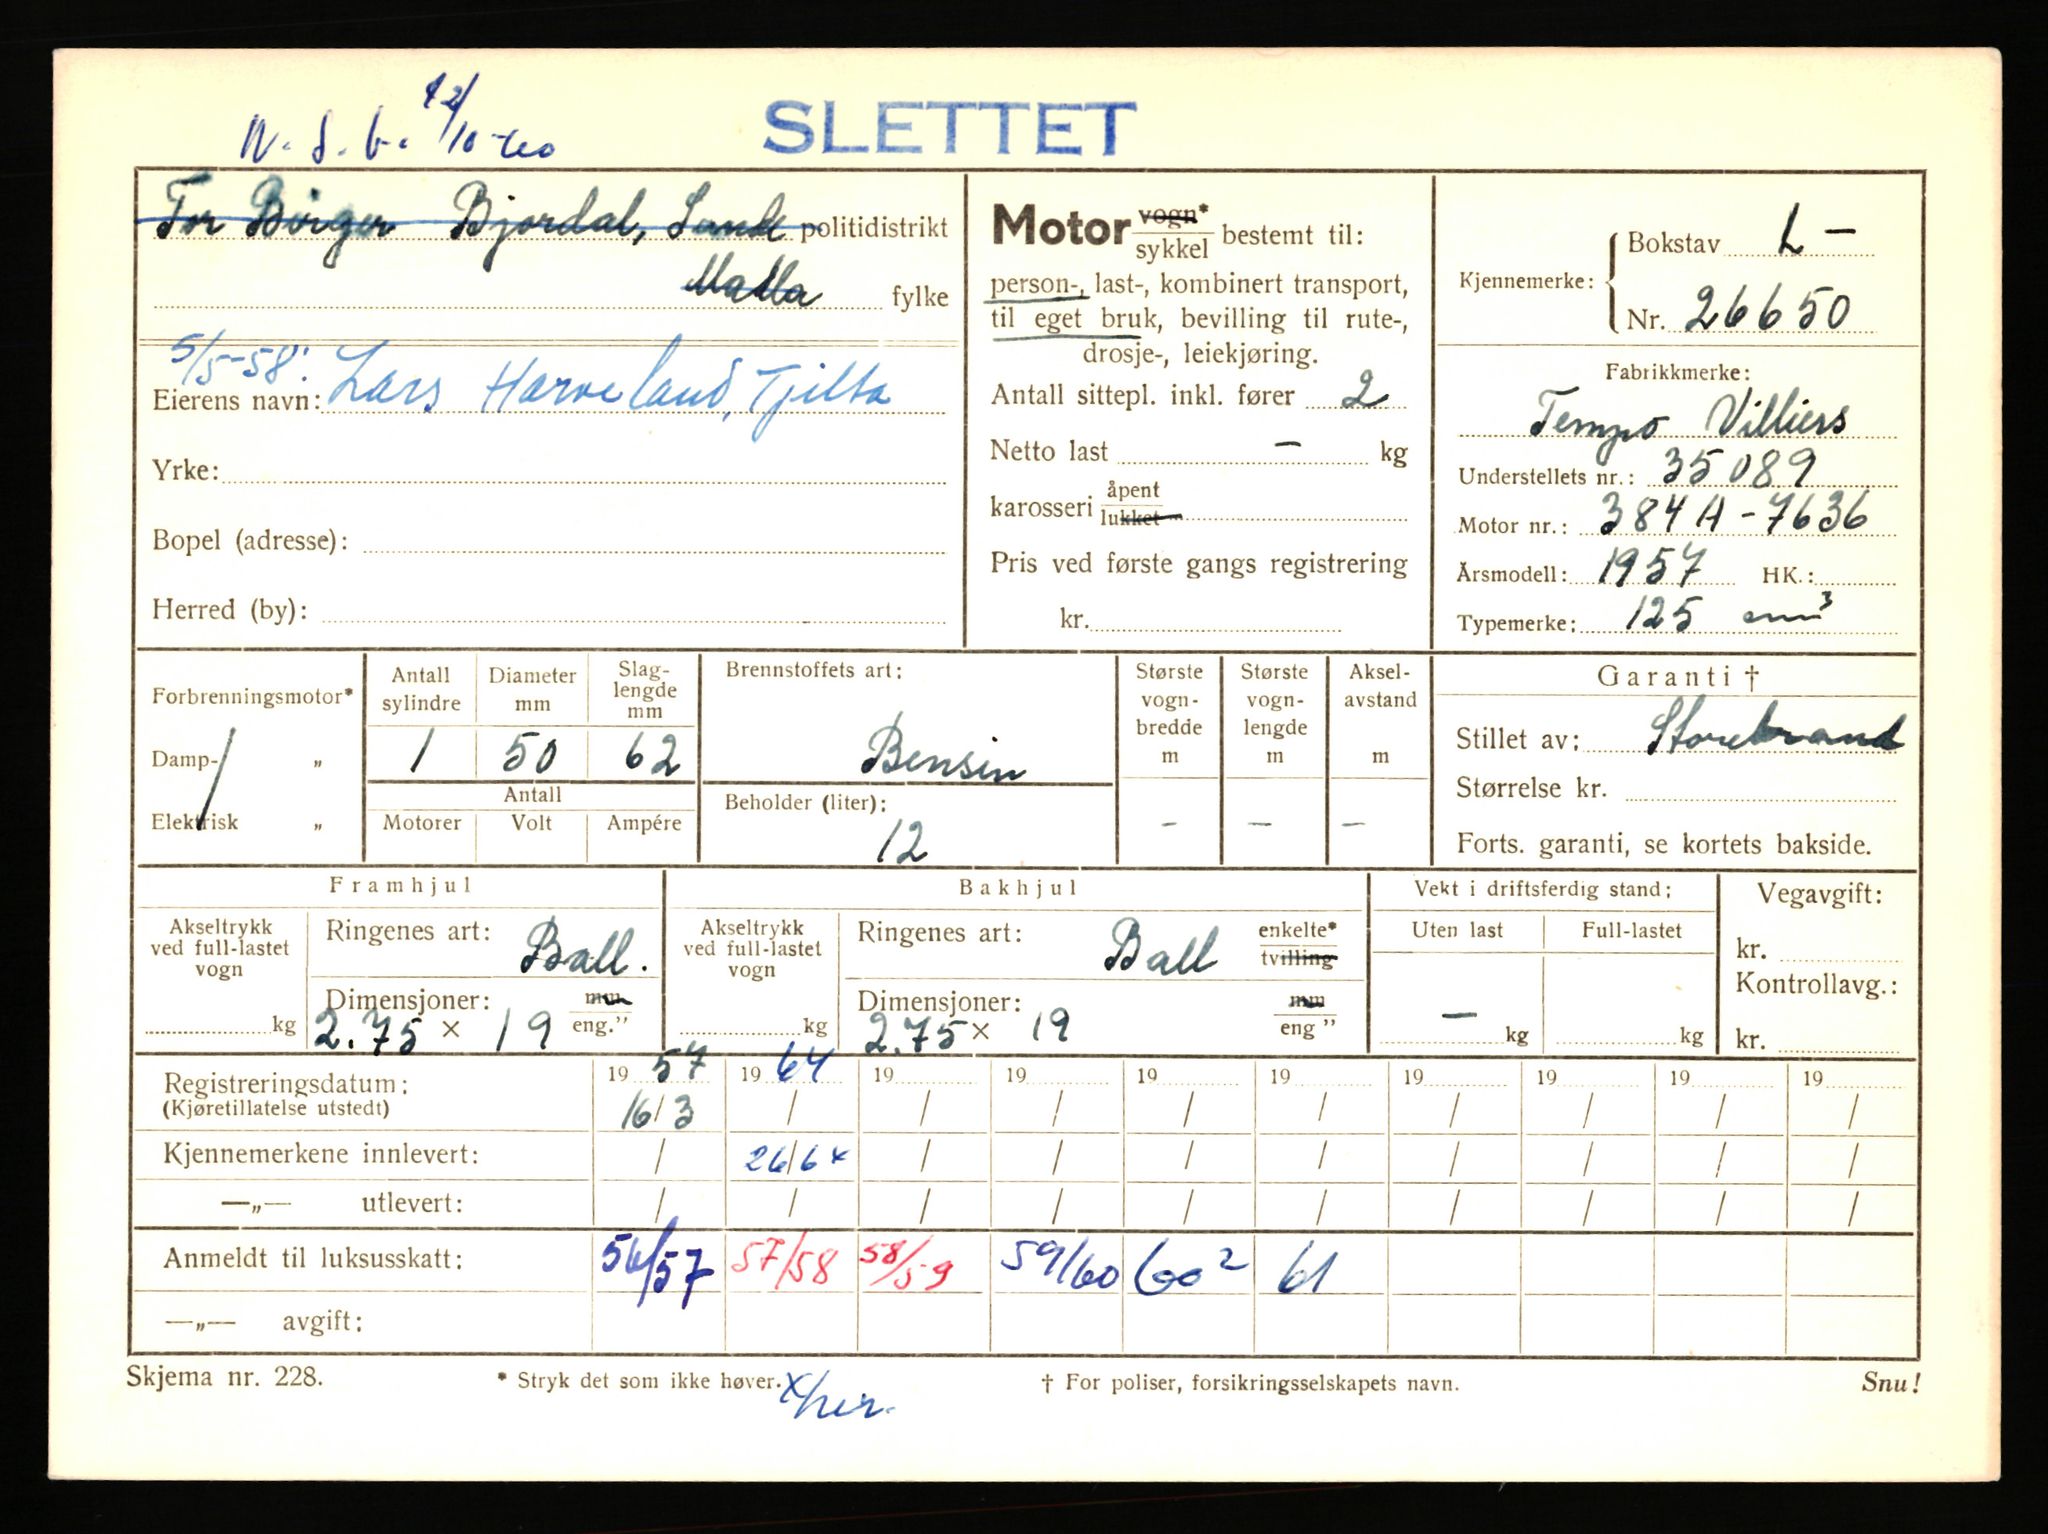 N.S.b. 12/10-60
SLETTET
Tor Børger Bjordal, Sande politidistrikt
Madla fylke
5/5-58:
Eierens navn: Lars Harveland, Tjelta
Yrke:
Bopel (adresse):
Herred (by):
Motor vogn* sykkel bestemt til:
person-, last-, kombinert transport,
til eget bruk, bevilling til rute-,
drosje-, leiekjøring.
Antall sittepl. inkl. fører 2
Netto last – kg
karosseri åpent lukket
Pris ved første gangs registrering
kr.
Kjennemerke: Bokstav L –
Nr. 26650
Fabrikkmerke:
Tempo Villiers
Understellets nr.: 35089
Motor nr.: 384A-7636
Årsmodell: 1957 HK.:
Typemerke: 125 cm³
Forbrenningsmotor*
Damp- „
Elektrisk „
Antall sylindre
1
Diameter mm
50
Slag-lengde mm
62
Antall
Motorer Volt Ampére
Brennstoffets art:
Bensin
Beholder (liter):
12
Største vogn-bredde m
–
Største vogn-lengde m
–
Aksel-avstand m
–
Garanti †
Stillet av: Storebrand
Størrelse kr.
Forts. garanti, se kortets bakside.
Framhjul
Akseltrykk ved full-lastet vogn
kg
Ringenes art: Ball.
Dimensjoner: mm
2.75 × 19 eng.”
Bakhjul
Akseltrykk ved full-lastet vogn
kg
Ringenes art: Ball enkelte* tvilling
Dimensjoner: mm
2.75 × 19 eng ”
Vekt i driftsferdig stand:
Uten last Full-lastet
– kg kg
Vegavgift:
kr.
Kontrollavg.:
kr.
Registreringsdatum: 19 57 19 64 19 19 19 19 19 19 19 19
(Kjøretillatelse utstedt) 16/3 / / / / / / / / /
Kjennemerkene innlevert: / 26/6 x / / / / / / / /
—„— utlevert: / / / / / / / / / /
Anmeldt til luksusskatt: 56/57 57/58 58/59 59/60 60² 61
—„— avgift:
Skjema nr. 228. * Stryk det som ikke høver. x/her. † For poliser, forsikringsselskapets navn. Snu!